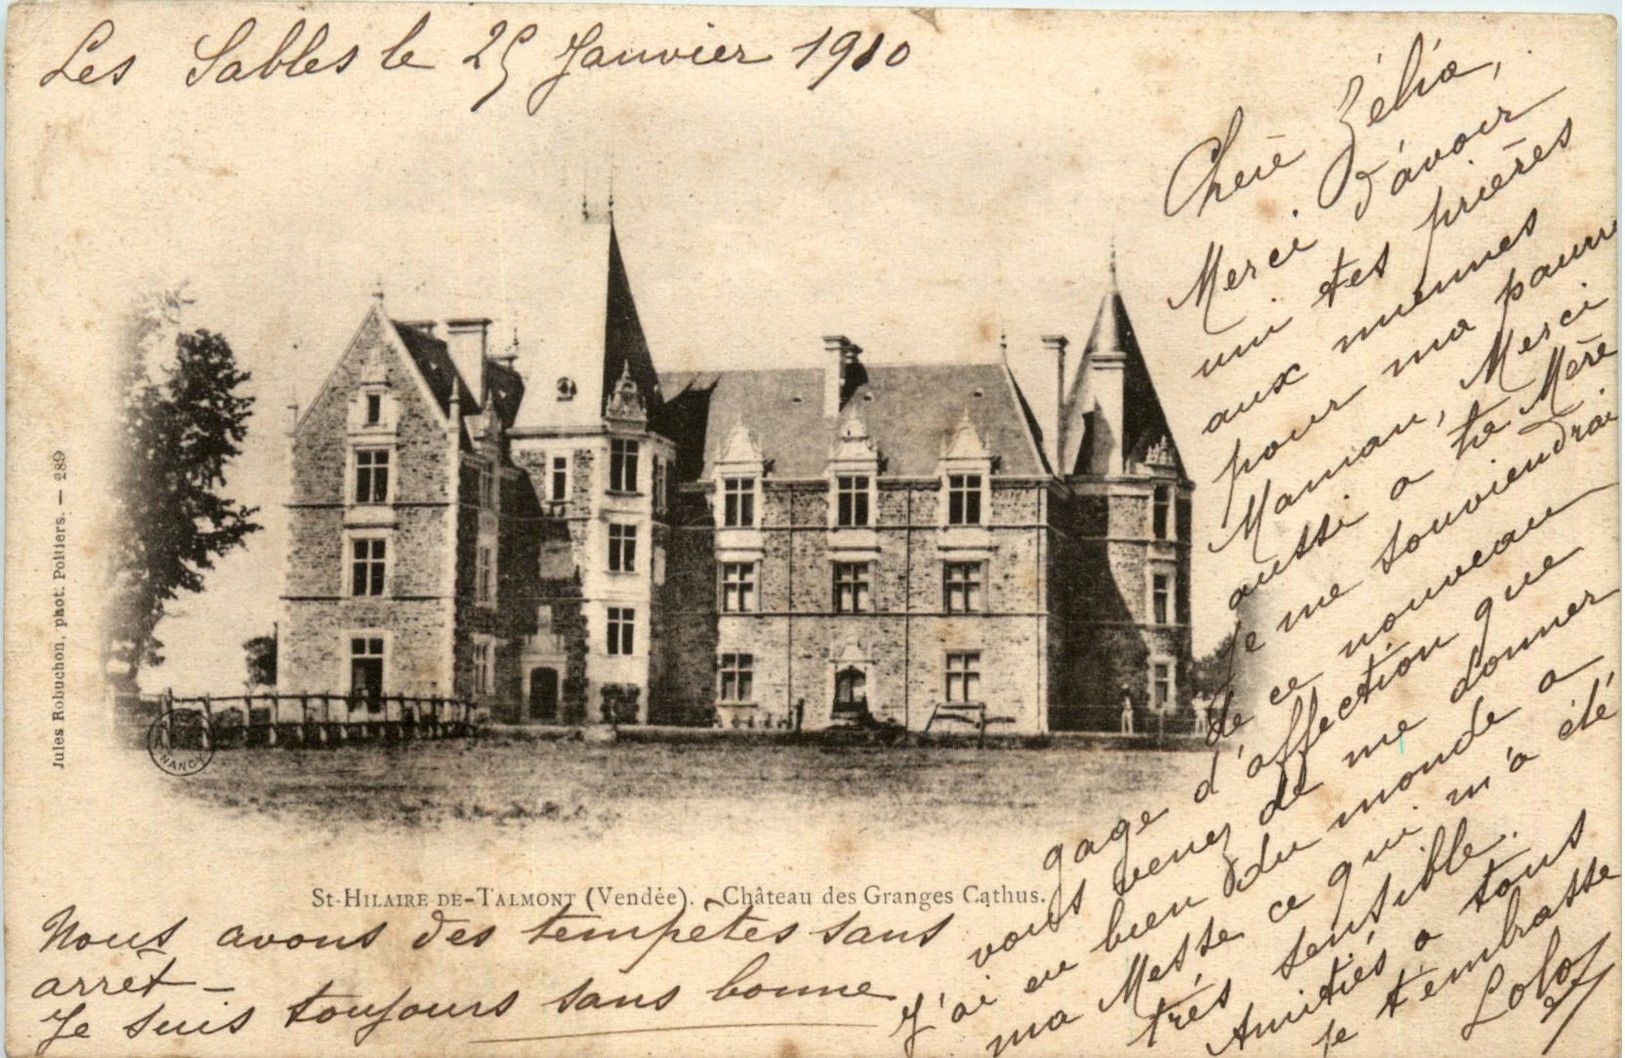 Les Sables le 25 Janvier 1910
Chère Zélia,
Merci d'avoir
uni tes prières
aux miennes
pour ma pauvre
Maman, Merci
aussi a ta Mère
Je me souviendrai
de ce nouveau
gage d'affection que
vous venez de me donner
J'ai eu bien du monde a
ma Messe ce qui m'a été
très sensible.
Amitiés a tous
je t'embrasse
Lolo
Jules Robuchon, phot. Poitiers. — 289
NANCY
St-HILAIRE DE-TALMONT (Vendée). - Château des Granges Cathus.
Nous avons des tempêtes sans
arrêt —
Je suis toujours sans bonne